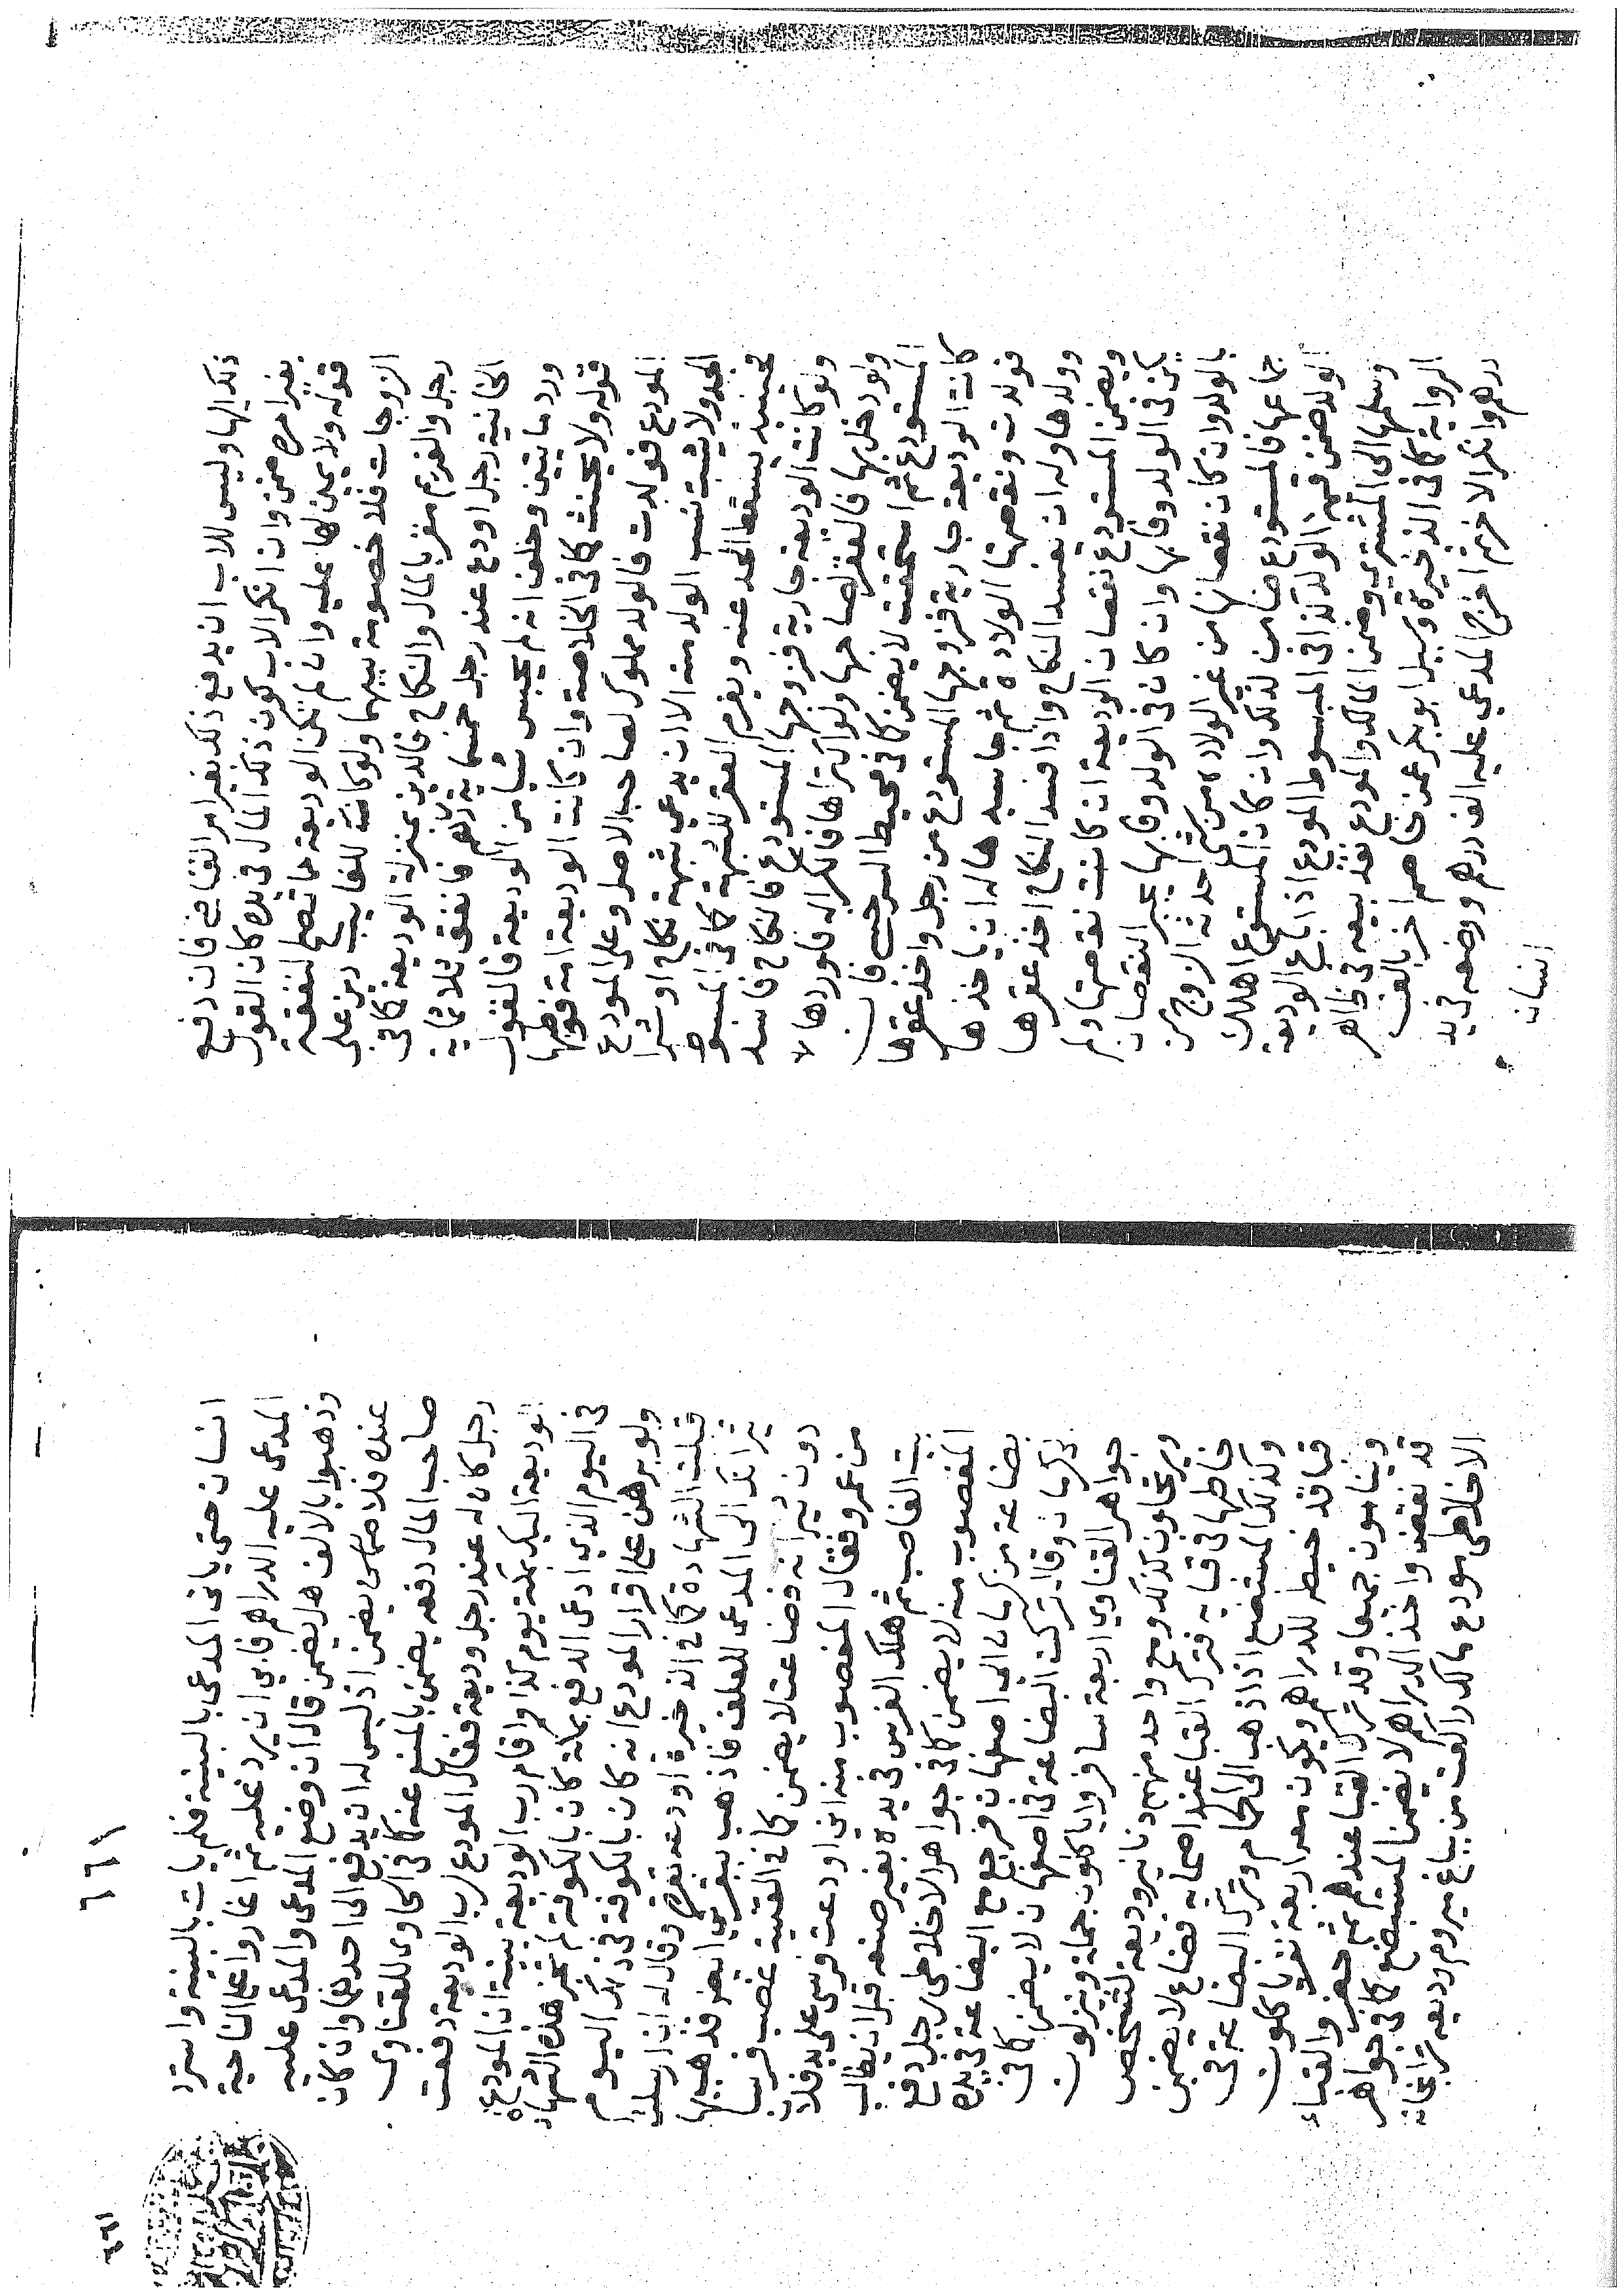 ذلك اليها وليس للاب ان يدفع ذلك بغير امر القاضي فان دفع
بغير امره ضمن وان انكر الاب كون ذلك المال في يده كان القول
قوله ولا يمين لها عليه وان لم تكن الوديعة مما تصلح لنفقة
الزوجات فلا خصومة بينهما ولو كان للغايب دين على
رجل والغريم مقر بالمال والنكاح فالدين بمنزلة الوديعة كما في
الخانية رجل اودع عند رجل خمسماية درهم فانفق ثلاثماية
ورد مايتين وحلف انه لم يحبس شيا من الوديعة فالقول
قوله ولا يحنث كما في الخلاصة وان كانت الوديعة امة فوطئها
المودع فولدت فالولد مملوك لصاحب الاصل وعلى المودع
الحد ولا يثبت نسب الولد منه الا ان يدعي شبهة نكاح او شرا
فحينئذ يسقط الحد عنه ويغرم العقر للشبهة كما في المبسوط
ولو كانت الوديعة جارية فزوجها المستودع فالنكاح فاسد
ولو دخل بها فالعقر لصاحبها ولو اكتراها فالكرا له فلو ردها لا
المستودع ثم استحقت لا يضمن كما في محيط السرخسي فان
كانت الوديعة جارية فزوجها المستودع من رجل واخذ عقرها
فولدت ونقصتها الولادة ثم جا سيدها له ان ياخذها
وولدها وله ان يفسد النكاح واذا فسد النكاح اخذ عقرها
ويضمن المستودع نقصان الوديعة ان كانت نقصتها ولم
يكن في الولد وفا بها وان كان في الولد وفا بها يجبر النقصان
بالولد وان كان نقصانها من غير الولادة من شي احدثه الزوج من
جماعها فالمستودع ضامن لذلك وان كان المستودع اهلك
الولد ضمن قيمة الولد كذا في المبسوط المودع اذا باع الوديعة
وسلمها الى المشتري وضمن المالك المودع نفذ بيعه في ظاهر
الرواية كما في الذخيرة وسيل ابو بكر عمن خاصم اخر بالف
درهم وانكر الاخر ثم اخرج المدعي عليه الف درهم ووضعه في يد
انسان
١٦٦
انسان حتى ياتي المدعي بالبينة فلم يات بالبينة واسترد
المدعى عليه الدراهم فابى ان يرد عليه ثم اغاروا على الناحية
وذهبوا بالالف هل يضمن قال ان وضع المدعي والمدعى عليه
عنده فلا يضمن اذ ليس له ان يدفع الى احدهما وان كان
صاحب المال دفعه يضمن بالمنع عنه كما في الحاوي للفتاوى
رجل كان له عند رجل وديعة فقال المودع لرب الوديعة دفعت
الوديعة اليك بمكة يوم كذا واقام رب الوديعة بينة ان المودع
في اليوم الذي ادعى الدفع بمكة كان بالكوفة لم تجز هذه الشهادة
ولو برهن على اقرار المودع انه كان بالكوفة في ذلك اليوم
قبلت الشهادة كما في الذخيرة اودعه بقره وقال له ان ارسلت
ثيرانك الى المرعى للعلف فاذهب ببقرتي ايضا فذهب بها
دون ثيرانه فضاعت لا يضمن كما في القنية غصب فرسا
من عمرو فقال المغصوب منه اني اودعت فرسي على يد فلان
بيت الغاصب ثم هلك الفرس في يده بغير صنعه قبل ان يطالب
المغصوب منه لا يضمن كما في جواهر الاخلاطي رجل دفع
بضاعة من كرمان الى اصفهان فرجع مع البضاعة في يده
كرمان وقال تركت البضاعة في اصفهان لا يضمن كما في
جواهر الفتاوي اربعة سافروا ياكلون جملة وينزلون
ويرتحلون كذلك ومع واحد منهم دنانير وديعة لشخص
خاطها في قبايه فترك القبا عند اصحابه فضاع لا يضمن
وكذلك المستبضع اذا ذهب الى الحمام وترك البضاعة في
قباقد خيطه للدراهم ويكون معه اربعة نفر ياكلون
وينامون جميعا وقد ترك القبا عندهم ثم حضر والقباء
قد نقض واخذ الدراهم لا يضمن المستبضع كما في جواهر
الاخلاطي مودع مالك
١٦٦